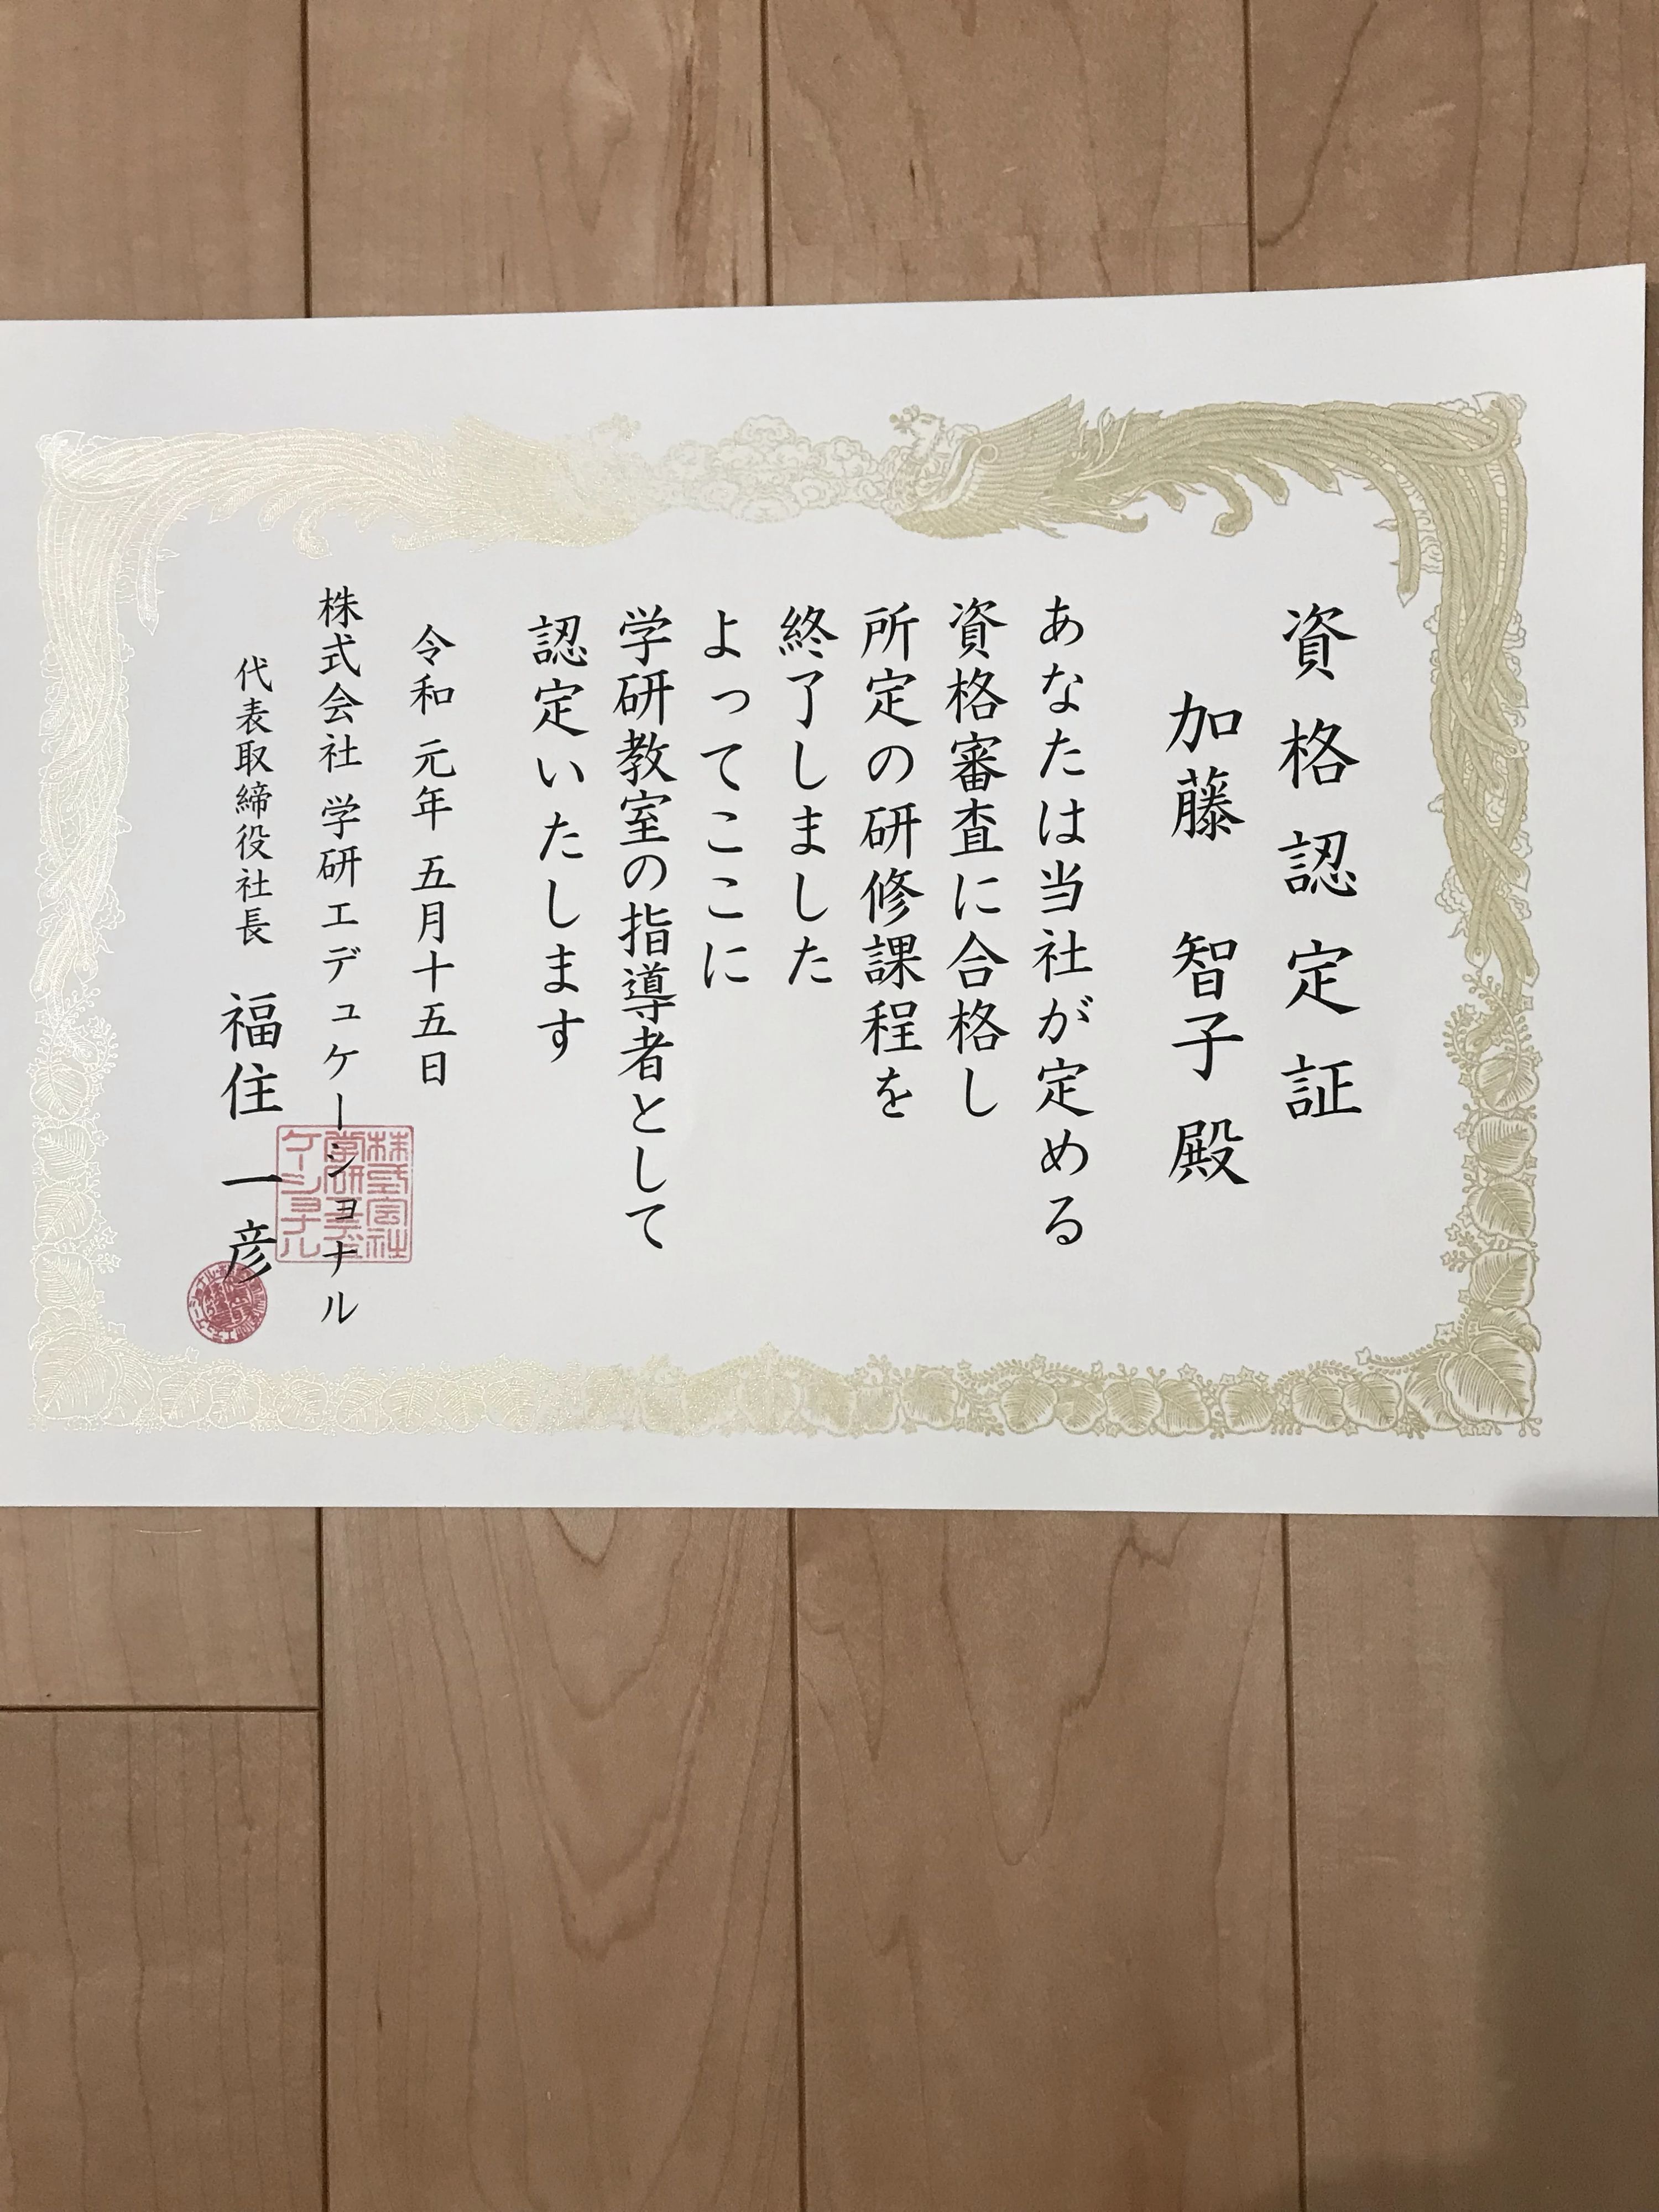 資格認定証
加藤 智子 殿
あなたは当社が定める
資格審査に合格し
所定の研修課程を
終了しました
よってここに
学研教室の指導者として
認定いたします
令和元年五月十五日
株式会社 学研エデュケーショナル
代表取締役社長 福住 一彦
株式会社
学研エデュ
ケーショナル